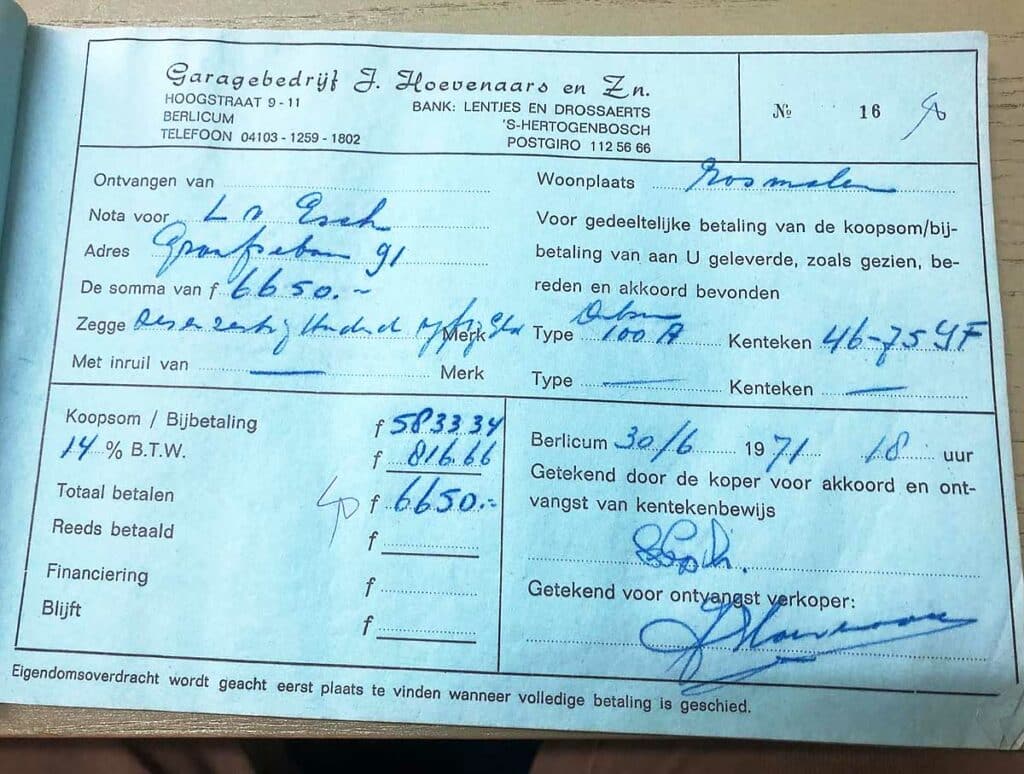 Garagebedrijf J. Hoevenaars en Zn.
HOOGSTRAAT 9 - 11
BERLICUM
TELEFOON 04103 - 1259 - 1802
BANK: LENTJES EN DROSSAERTS
'S-HERTOGENBOSCH
POSTGIRO 112 56 66
№ 16
Ontvangen van
Nota voor L v Esch
Adres 91
De somma van f 6650.-
Zegge
Merk
Met inruil van Merk
Woonplaats Rosmalen
Voor gedeeltelijke betaling van de koopsom/bij-
betaling van aan U geleverde, zoals gezien, be-
reden en akkoord bevonden
Type Datsun 100 A Kenteken 46-75 YF
Type Kenteken
Koopsom / Bijbetaling f 5833 34
14 % B.T.W. f 816.66
Totaal betalen f 6650.-
Reeds betaald f
Financiering f
Blijft f
Berlicum 30/6 1971 18 uur
Getekend door de koper voor akkoord en ont-
vangst van kentekenbewijs
Getekend voor ontvangst verkoper:
J Hoevenaars
Eigendomsoverdracht wordt geacht eerst plaats te vinden wanneer volledige betaling is geschied.